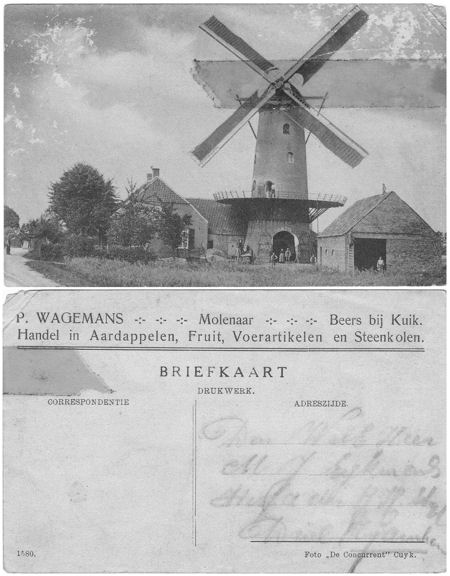 P. WAGEMANS -:- -:- Molenaar -:- -:- Beers bij Kuik.
Handel in Aardappelen, Fruit, Voerartikelen en Steenkolen.
BRIEFKAART
DRUKWERK.
CORRESPONDENTIE
ADRESZIJDE.
Den
M J
1580.
Foto „De Concurrent” Cuyk.